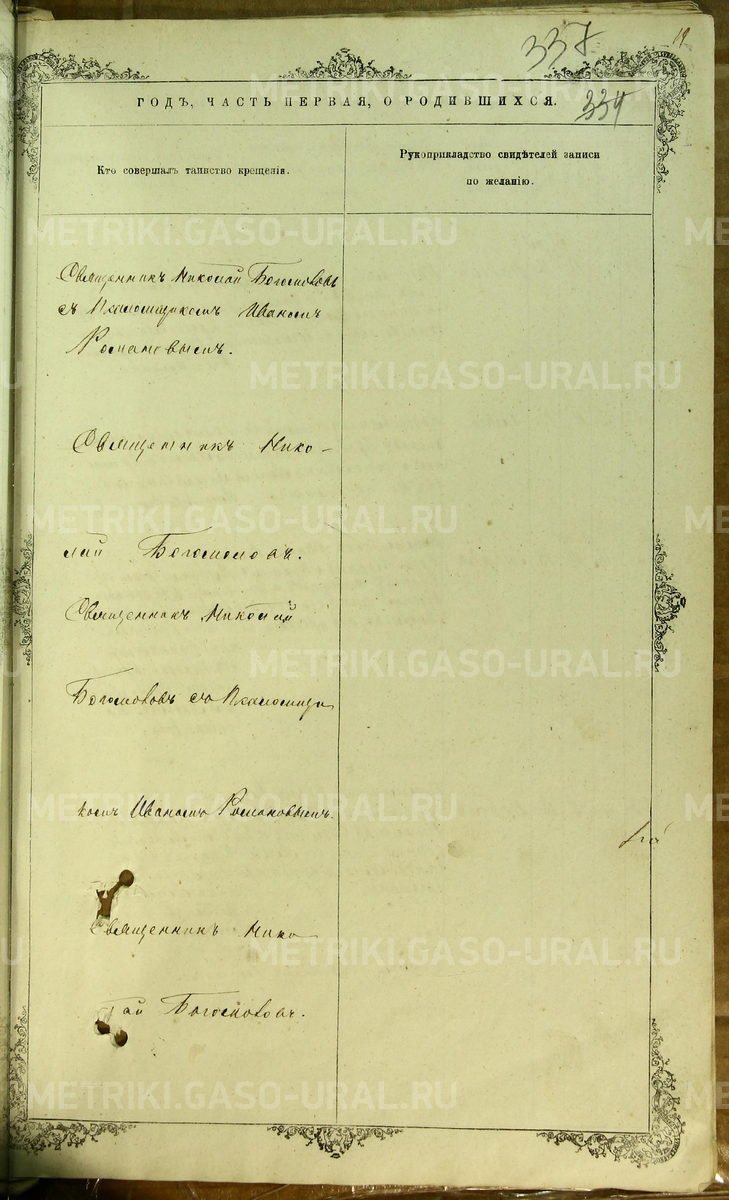 337
19
ГОДЪ, ЧАСТЬ ПЕРВАЯ, О РОДИВШИХСЯ.
334
Кто совершалъ таинство крещенія.
Рукоприкладство свидѣтелей записи
по желанію.
Священникъ Николай Богословъ
съ Псаломщикомъ Иваномъ
Романовымъ.
Священникъ Нико-
лай Богословъ.
Священникъ Николай
Богословъ съ Псаломщи
комъ Иваномъ Романовымъ.
Священникъ Нико
лай Богословъ.
METRIKI.GASO-URAL.RU